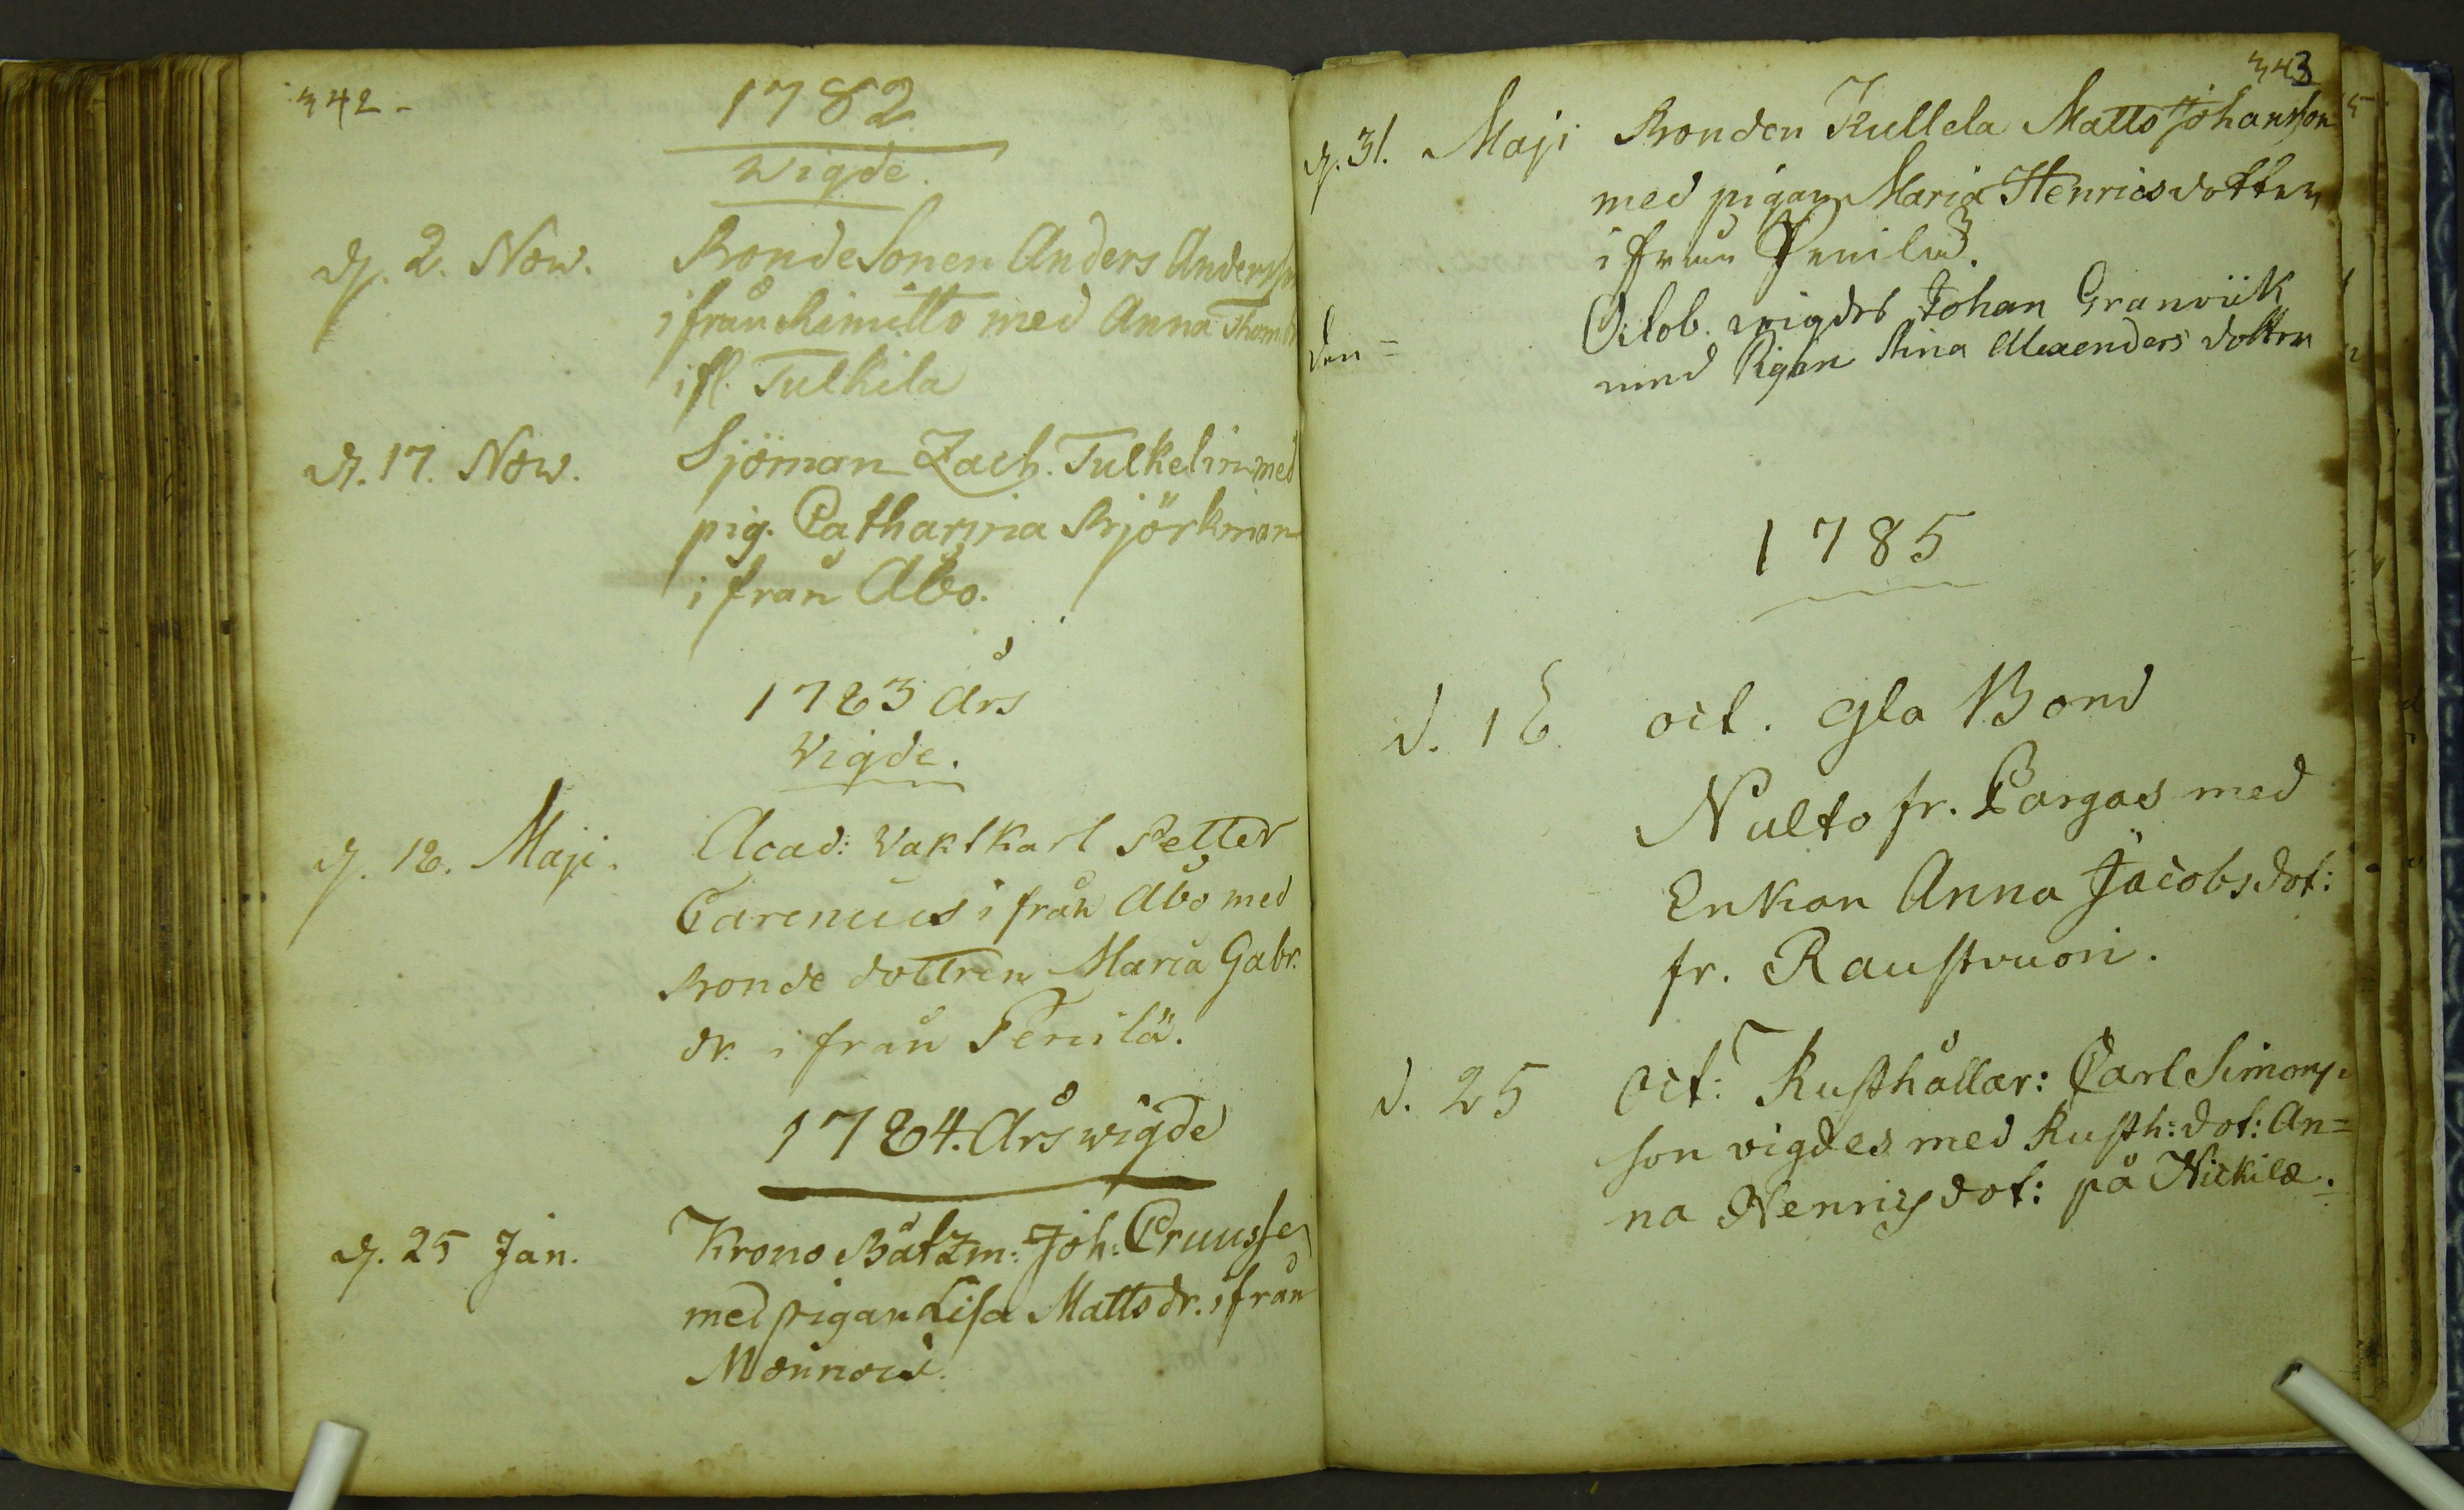 342-
1782
Wigde.
d. 2. Now. BondeSonen Anders Andersson
ifrån Rimitto med Anna Thom.dr
ifl. Tulkila
d. 17. Now. Sjöman Zach. Tulkelin med
pig. Catharina Björkman
ifrån Åbo.
1783 Års
Vigde.
d. 18. Maji. Acad: Vaktkarl Petter
Carenius ifrån Åbo med
Bonde dottren Maria Gabr.
dr. ifrån Penilä.
1784. Års wigde
d. 25 Jan. Krono Båtzm: Joh: Cruusse
med pigan Lisa Matts dr. ifrån
Mounois.
343
d. 31. Maji Bonden Kullela Matts Johansson
med pigan Maria Henricsdotter
ifrån Penilä.
den = Octob. wigdes Johan Granviik
med Pigan Stina Alexanders dotter
1785
d. 18 oct. Gla Bond
Nulto fr. Pargas med
Enkan Anna Jacobsdot:
fr. Raustvuori.
d. 25 Oct: Rusthållar: Carl Simons-
son vigdes med Rusth: dot: An=
na Henricsdot: på Nickilä.